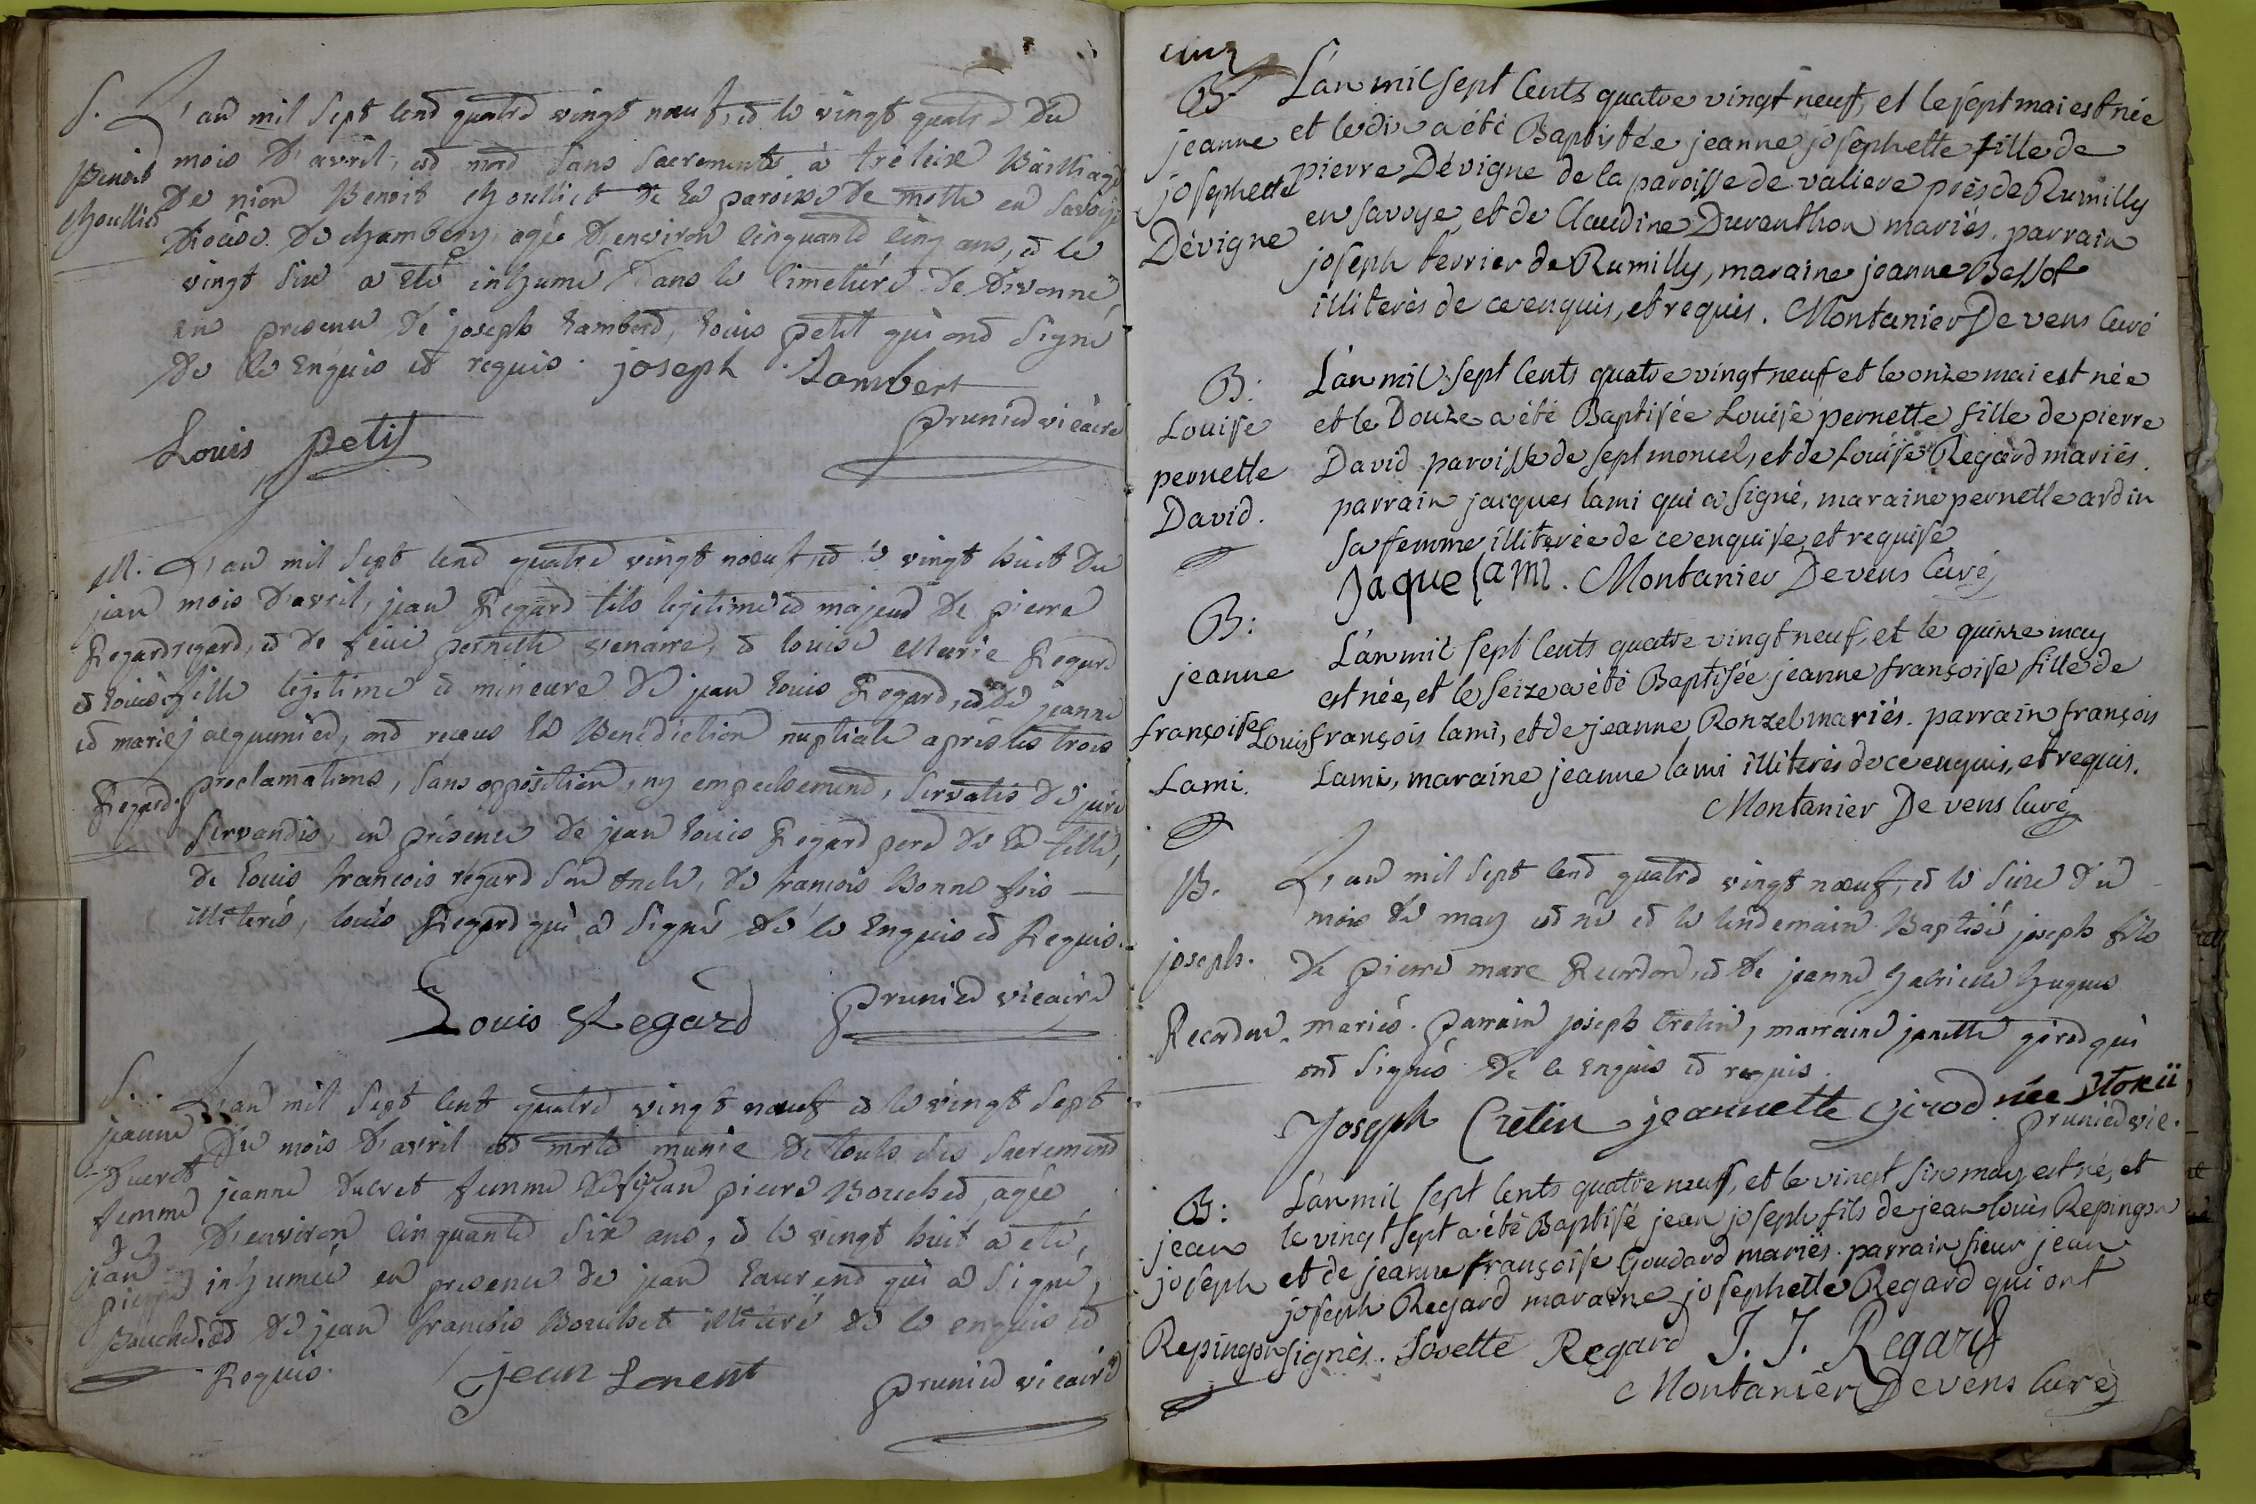 S.
Benoit
Choullict
L'an mil sept cent quatre vingt noeuf, et le vingt quatre du
mois d'avril, est mort sans sacrements à treleix Bailliage
de nion Benoit Choullict de la paroisse de motte en Savoye
diocèse de chambery, agée d'environ cinquante cinq ans, et le
vingt six a été inhumé dans le cimetiére de divonne
en presence de joseph Lambert, Louis petit qui ont signé
de ce enquis et requis. joseph Lambert
Louis petit
prunied vicaire
M.
jean
Regard
et louise
et marie
Regard.
L'an mil sept cent quatre vingt noeuf et le vingt huit du
mois d'avril, jean Regard fils legitime et majeur de pierre
regard, et de feüe pernette venarre, et louise Marie Regard
fille legitime et mineure de jean louis Regard, et de jeanne
jacquenied, ont recus la Bénédiction nuptiale après les trois
proclamations, sans opposition, ny empechement, servatis de jure
servandis, en présence de jean louis Regard pere de la fille,
de louis francois régard son oncle, de francois Bonne fois
illiterés, louis Regard qui a signé de ce enquis et Requis.
Louis Regard prunied vicaire
S.
jeanne
ducret
femme
de
jean
pierre
Bouchet
L'an mil sept cent quatre vingt noeuf et le vingt sept
du mois d'avril est morte munie de touts ses sacrement
jeanne ducret femme de jean pierre Bouchet, agée
d'environ cinquante six ans, et le vingt huit a été,
inhumée en presence de jean Laurend qui a signé,
et de jean francois Bouchet illiteré de ce enquis et
Requis. jean Lorent prunied vicaire
B.
jeanne
josephette
Dévigne
L'an mil sept cents quatre vingt neuf, et le sept mai est née
et le dix a été Baptistée jeanne josephette fille de
pierre Dévigne de la paroisse de valiere près de Rumilly
en savoye, et de Claudine Duranthon mariés. parrain
joseph terrier de Rumilly, maraine jeanne Bessot
illiterés de ce enquis, et requis. Montanier De vens Curé
B:
Louise
pernette
David.
L'an mil sept cents quatre vingt neuf et le onze mai est née
et le Douze a été Baptisée Louise pernette fille de pierre
David paroisse de sept moncel, et de Louise Regard mariés.
parrain jacques lami qui a signé, maraine pernette ardin
sa femme illiterée de ce enquise, et requise
Jaque lami. Montanier De vens Curé
B:
jeanne
françoise
Lami.
L'an mil sept cents quatre vingt neuf, et le quinze may
est née, et le seize a été Baptisée jeanne françoise fille de
Louis françois lami, et de jeanne Ronzel mariés. parrain françois
Lami, maraine jeanne lami illiterés de ce enquis, et requis.
Montanier De vens Curé
B.
joseph.
Recordon.
L'an mil sept cent quatre vingt noeuf, et le seize du
mois de may est né et le lendemain Baptisé joseph fils
de pierre marc Recordon, et de jeanne gabrielle hugues
mariés. parrain joseph Cretin, marraine janette girod qui
ont signés de ce enquis et requis.
Joseph Cretin jeannette girod née
prunied vic.
B:
jean
joseph
Repingon
L'an mil sept cents quatre neuf, et le vingt six may est né, et
le vingt sept a été Baptisé jean joseph fils de jean louis Repingon
et de jeanne françoise Goudard mariés. parrain sieur jean
joseph Regard maraine josephette Regard qui ont
signés. Josette Regard J. J. Regard
Montanier De vens Curé